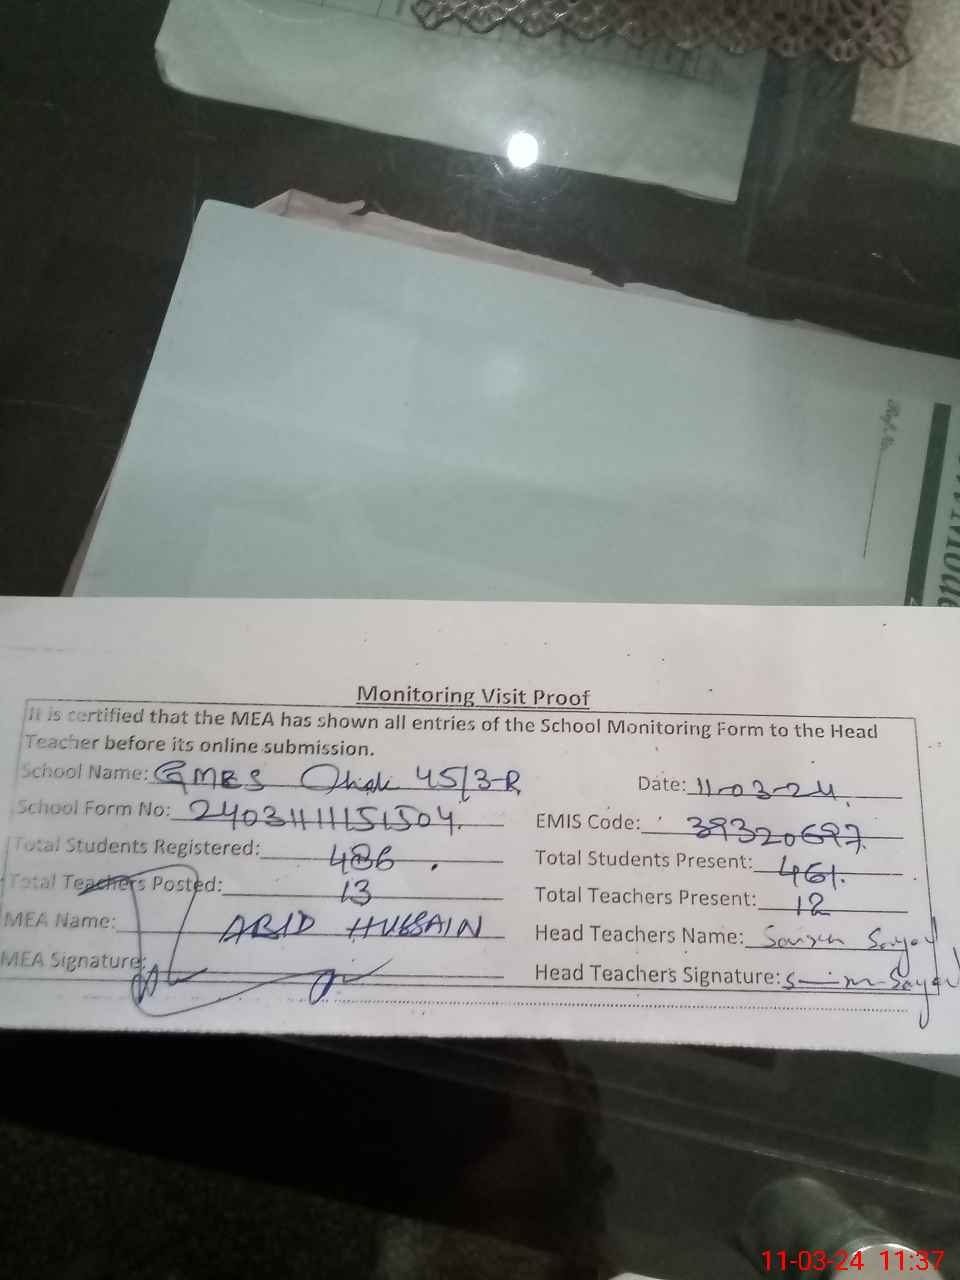 Ref. No.
Monitoring Visit Proof
It is certified that the MEA has shown all entries of the School Monitoring Form to the Head
Teacher before its online submission.
School Name: GMES Chak 45/3-R Date: 11-03-24.
School Form No: EMIS Code: 39320697.
Total Students Registered: 486 Total Students Present: 461.
Total Teachers Posted: 13 Total Teachers Present: 12
MEA Name: ABID HUSSAIN Head Teachers Name:
MEA Signature: Head Teacher's Signature:
11-03-24 11:37